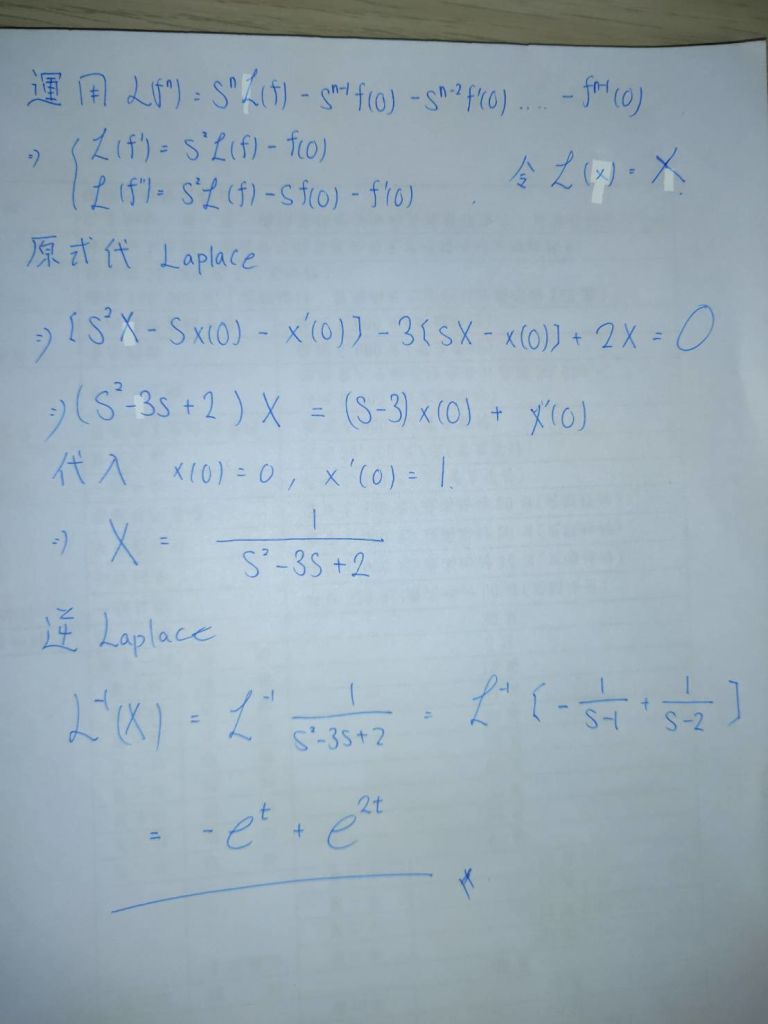 運用 ℒ(fⁿ) = Sⁿℒ(f) - Sⁿ⁻¹f(0) - Sⁿ⁻²f'(0) .... - fⁿ⁻¹(0)
⇒ { ℒ(f') = S²ℒ(f) - f(0)
ℒ(f'') = S²ℒ(f) - Sf(0) - f'(0)
令 ℒ(x) = X.
原式代 Laplace
⇒ [S²X - Sx(0) - x'(0)] - 3[SX - x(0)] + 2X = 0
⇒ (S²-3S+2) X = (S-3)x(0) + x'(0)
代入 x(0) = 0, x'(0) = 1.
⇒ X = 1/(S²-3S+2)
逆 Laplace
ℒ⁻¹(X) = ℒ⁻¹ 1/(S²-3S+2) = ℒ⁻¹ [ - 1/(S-1) + 1/(S-2) ]
= -eᵗ + e²ᵗ